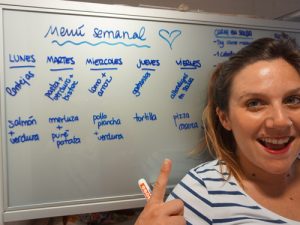 Menú semanal
LUNES MARTES MIERCOLES JUEVES VIERNES
lentejas
pasta + verdura +
lomo + arroz
garbanzos
albóndigas en salsa
salmón + verdura
merluza + puré patata
pollo plancha + verdura
tortilla
pizza casera